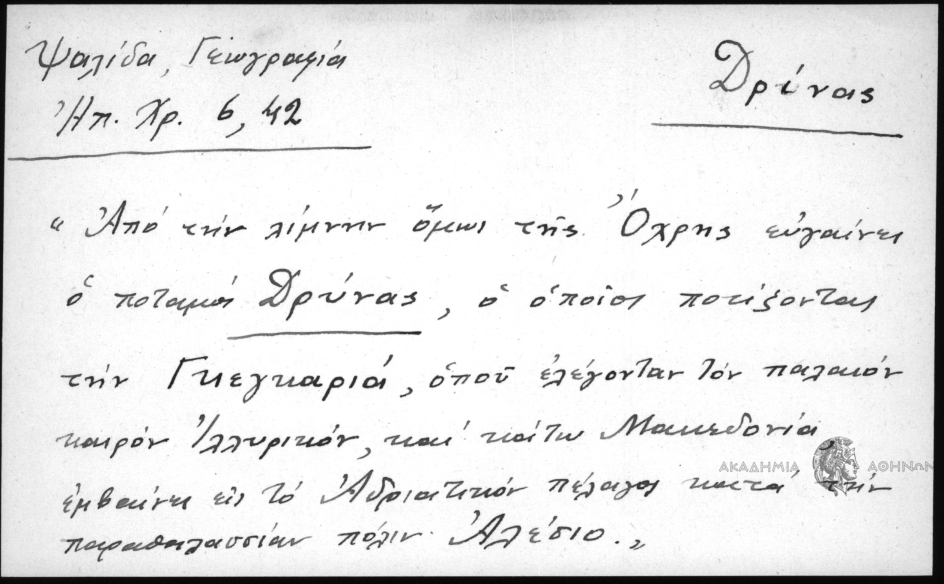 Ψαλίδα, Γεωγραφία
Ἠπ. Χρ. 6, 42
Δρύνας
"Ἀπό τήν λίμνην ὅμως τῆς Ὄχρης εὐγαίνει
ὁ ποταμός Δρύνας, ὁ ὁποῖος ποτίζοντας
τήν Γκεγκαριά, ὁποῦ ἐλέγονταν τόν παλαιόν
καιρόν Ἰλλυρικόν, καί κάτω Μακεδονία,
ἐμβαίνει εἰς τό Ἀδριατικόν πέλαγος κατά τήν
παραθαλασσίαν πόλιν Ἀλέσιο."
ΑΚΑΔΗΜΙΑ ΑΘΗΝΩΝ